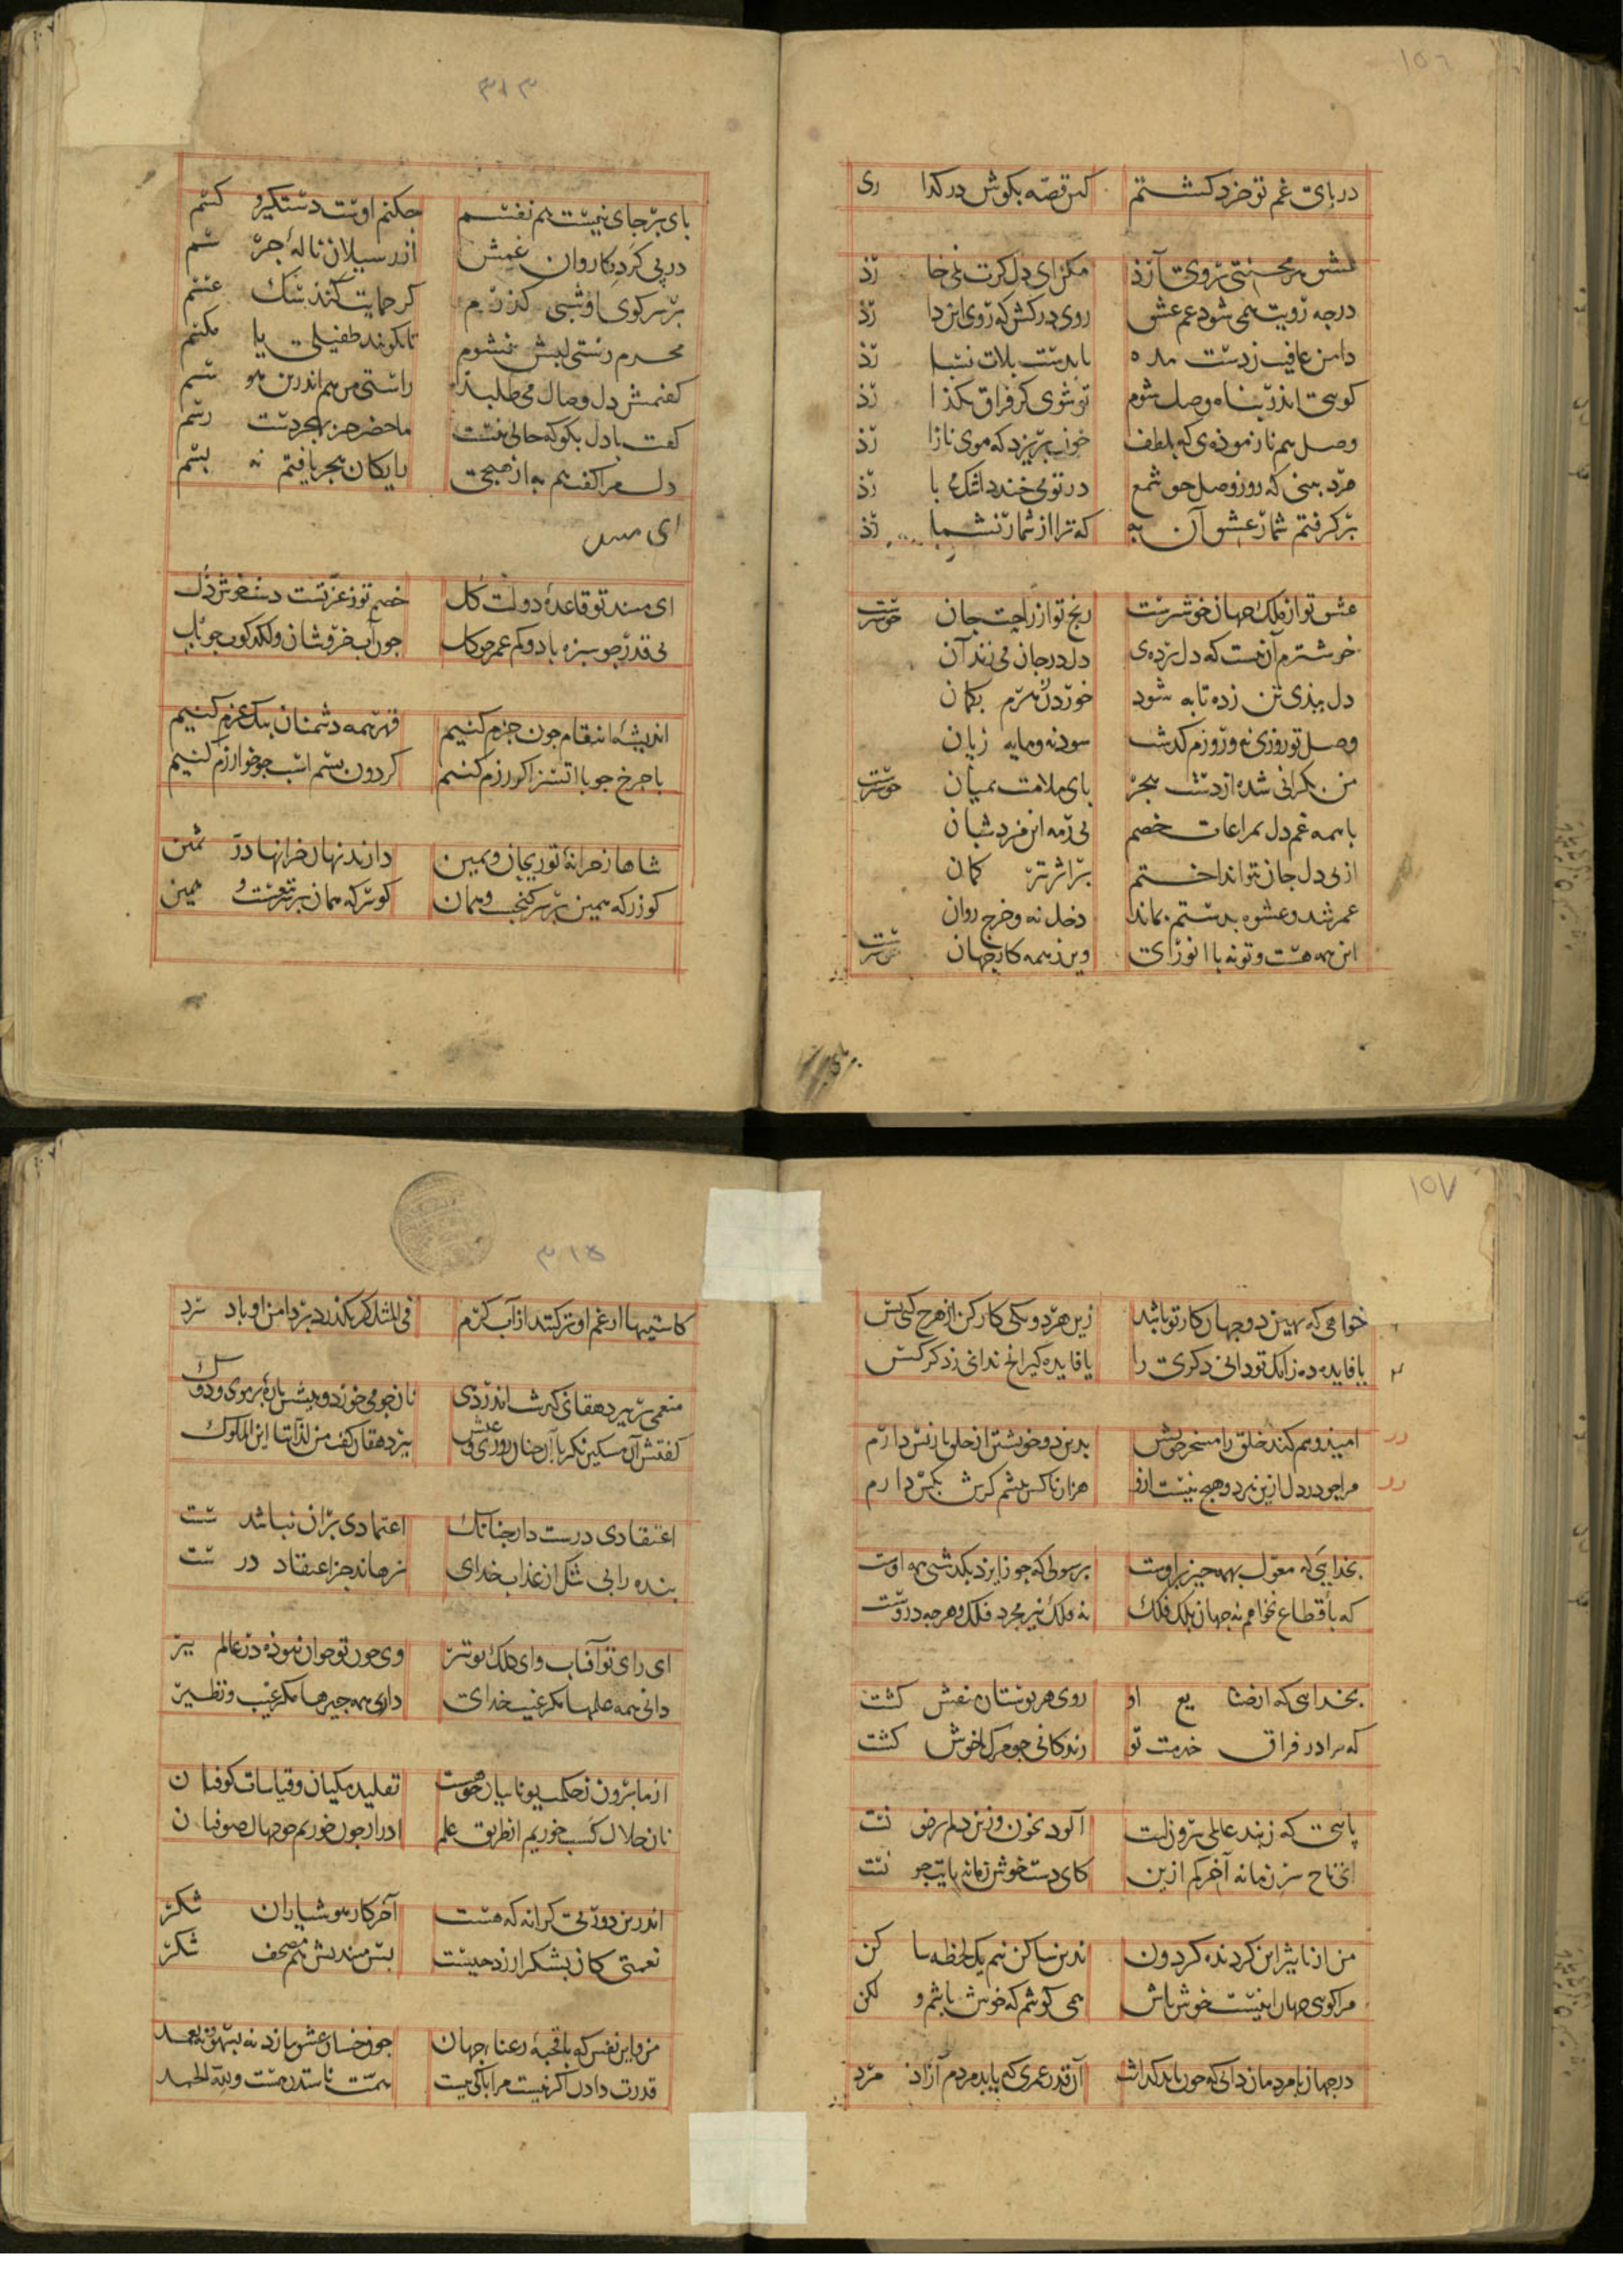 ۱۵٦
در پای غم تو خرد گشتم کس قصه بگوش در کذا ری
عشق هر محنتی بروی آرذ مکن ای دل کرت نمی خا رذ
درجه رویت همی شود غم عشق روی درکش که روی این دا رذ
دامن عافیت زدست مده با بدست بلات نسبا رذ
کوئی اندر پناه وصل شوم تو شوی کر فراق بکذا رذ
وصل هم نازموده‌ی که بلطف خون بریزد که موی نازا رذ
مرد بینی که روز وصل جو شمع در تو می خندد اشک می با رذ
برکرفتم شمار عشق آن به که ترا از شمار نشما رذ
عشق تو از ملک جهان خوشترست رنج تو از راحت جان خوشترست
خوشترم آن نیست که دل برده‌ی دل در جان می زند آن
دل ببذی تن زده تا به شود خوردن مرم بکمان
وصل تو روزی نه و روزم کذشت سود نه و مایه زیان
من بکرانی شده از دست هجر پای ملامت بمیان خوشترست
با همه غم دل بمراعات خصم بی رمه این مرد شبان
از پی دل جان بتو انداختم بر اثر تیر کمان
عمر شد و عشوه بدستم بماند دخل نه و خرج روان
این همه هست و تو نه با انوری وین ز همه کار جهان خوشترست
۳۱۳
پای بر جای نیست هم نفسم جکنم اوست دستکیر و کسم
در پی کرد کاروان غمش از رسیلان ناله جر سم
بر سر کوی او شبی کذرم کر حمایت کنذ سک عسسم
محرم دستی لبش نشوم تا نکویند طفیلی یا مکسم
کفتمش دل وصال می طلبد راستی من هم اندرین هو سم
کفت با دل بکو که حالی نیست ما حضر جز بهجر دست رسم
دل مرا کفت هم به از هیجست رایکان هجر یافتم نه بسم
ای مسند
ای مسند تو قاعده دولت کل خصم تو ز عزتست دستخوش ذل
بی قدر جو سبزه باد و کم عمر جو کل جون آب خروشان و لکدکوب جو پل
اندیشه انتقام جون جزم کنیم قهر همه دشمنان بیک عزم کنیم
با جرخ جو با اتسز اکر رزم کنیم کردون بسم اسب جو خوارزم کنیم
شاها ز خزانه تو ریحان و یمین دارند نهان خزانها در ثمین
کوزر که همین بر سر کنجست و همان کوتر که همان بر سر تست و همین
۱۵۷
خواهی که بهین دو جهان کار تو باشد زین هر دو یکی کار کن از هرج کنی بس
یا فایده ده زانک تو دانی دکری را یا فایده کیر آنج ندانی ز دکر کس
امید و بیم کند خلق را مسخر خویش بدین دو خویشتن از خلق باز پس دارم
مرا جو در دل ازین نیز و هیج نیست از او هزار ناکس باشم کرش بکس دارم
بخدایی که معول بهمه چیز بر اوست برسولی که جو ز ایزد بکذشتی همه اوست
که باقطاع نخواهم نه جهان بلک فلک نه فلک نیز مجرد فلک و هرجه در وست
بخدایی که از صنا یع او روی هر بوستان منقش کشت
که مرا در فراق خدمت تو زندکانی جو مرک ناخوش کشت
پاسی که ز بند عالمی بیرون است آلوده بخون وزین دلم پرخو نست
من از تأثیر این کردنده کردون ندین ساکن نیم یک لحظه سا کن
مرا کوئی جهان اینست خوش باش همی کوشم که خوش باشم و لکن
در جهان با مردمان دانی که جون باید کذاشت آن قدر عمری که یابد مردم آزاذ مرد
۳۱۵
کاستینها از غم او تر کنند از آب کرم فی المثل کر بکذرد بر دامن او باد سرد
منعمی بر پیر دهقانی کذشت اندر دی نان جو می خورد و پیشش پاره بز موی و دوک
کفتش ای مسکین نکر با این جنین روزی و عیش پیر دهقان کفت من لذاتنا این الملوک
اعتقادی درست دار جنانک اعتمادی بران نباشد سست
بنده را بی شک از عذاب خدای نرهاند جز اعتقاد در ست
ای رای تو آفتاب و ای کلک تو تیر وی جون تو جوان نبوذه در عالم پیر
دانی همه علمها مکر غیب خدای داری همه جیزها مکر عیب و نظیر
از ما برون ز حکمت یونانیان جو هست تقلید مکیان و قیاسات کوفیا ن
نان حلال کسب خوریم از طریق علم ادرار جون خوریم جو جهال صوفیا ن
اندرین دور بی کرانه که هست آخر کار هوشیاران شکر
نعمتی کان بشکر ارزد جیست بس میندیش هم مصحف شکر
من و این نفس که با قحبه رعنا جهان جون خسان عشق نبازد نه بسهو و نه بعمد
قدرت دادن اکر نیست مرا باکی نیست همت ناستدن هست و لله الحمد